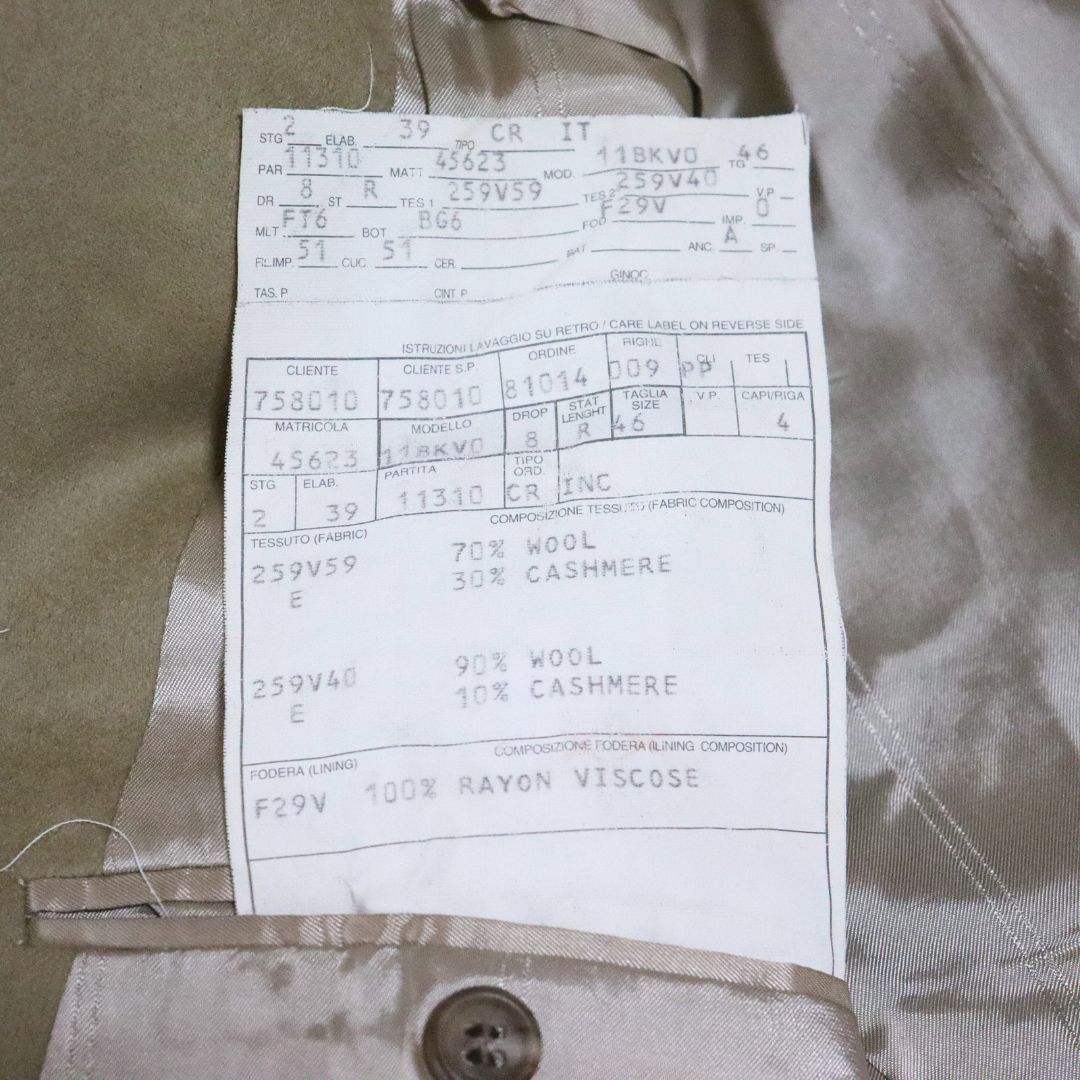 STG 2 ELAB. 39 TIPO CR IT
PAR 11310 MATT 45623 MOD. 11BKV0 TG 46
DR 8 ST R TES 1 259V59 TES 2 259V40 V.P 0
MLT FT6 BOT BG6 FOD F29V IMP. A
FR.IMP. 51 CUC. 51 CER. BAT ANC. SP.
TAS. P CINT. P GINOC
ISTRUZIONI LAVAGGIO SU RETRO / CARE LABEL ON REVERSE SIDE
CLIENTE CLIENTE S.P. ORDINE RIGHE CLI TES
758010 758010 81014 009 PP
MATRICOLA MODELLO DROP STAT LENGHT TAGLIA SIZE V.P. CAPI/RIGA
45623 11BKV0 8 R 46 4
STG ELAB. PARTITA TIPO ORD.
2 39 11310 CR INC
TESSUTO (FABRIC) COMPOSIZIONE TESSUTO (FABRIC COMPOSITION)
259V59 70% WOOL
E 30% CASHMERE
259V40 90% WOOL
E 10% CASHMERE
FODERA (LINING) COMPOSIZIONE FODERA (LINING COMPOSITION)
F29V 100% RAYON VISCOSE